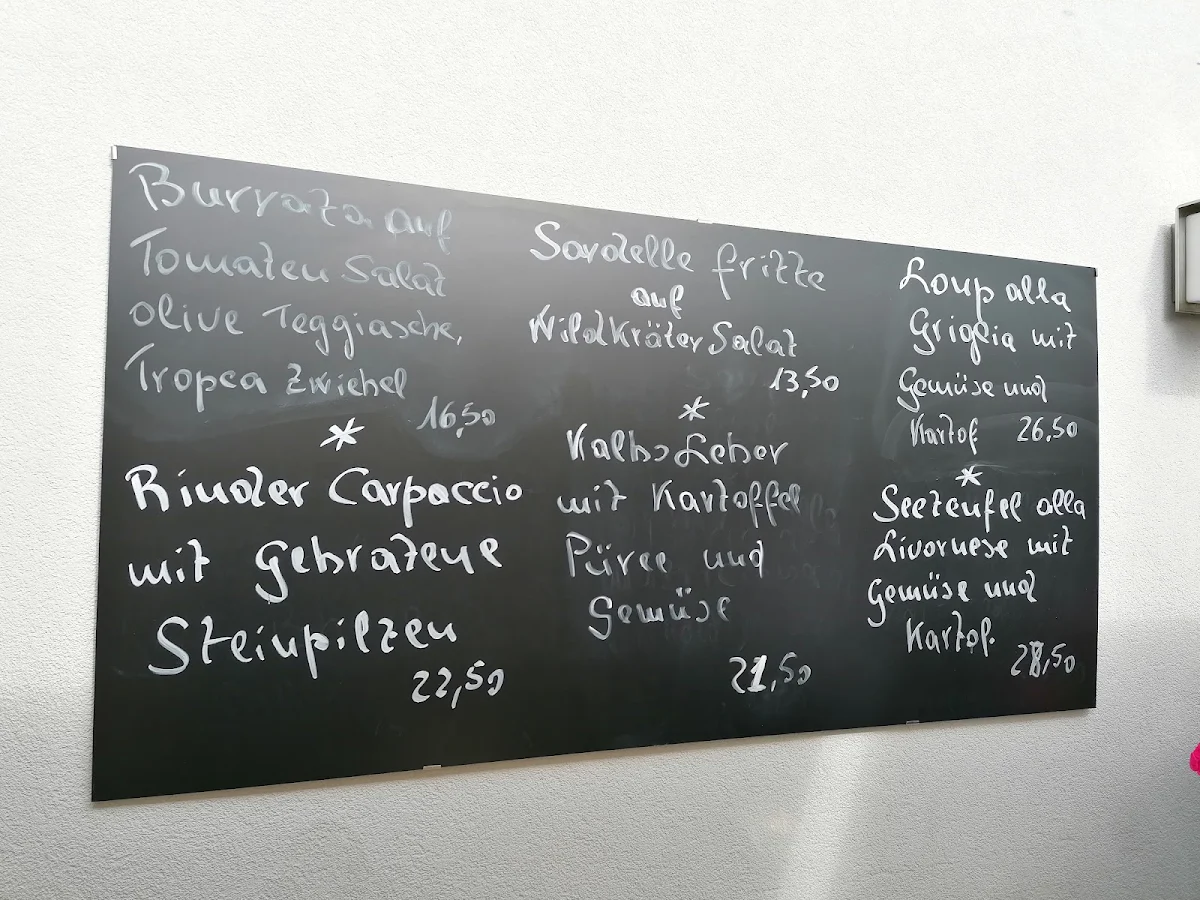 Burrata auf
Tomaten Salat
olive Teggiasche,
Tropea Zwiebel
16,50
*
Rinder Carpaccio
mit gebratene
Steinpilzen
22,50
Sardelle fritte
auf
Wildkräter Salat
13,50
*
Kalbs Leber
mit Kartoffel
Püree und
Gemüse
21,50
Loup alla
Griglia mit
Gemüse und
Kartof 26,50
*
Seeteufel alla
Livornese mit
Gemüse und
Kartof.
28,50